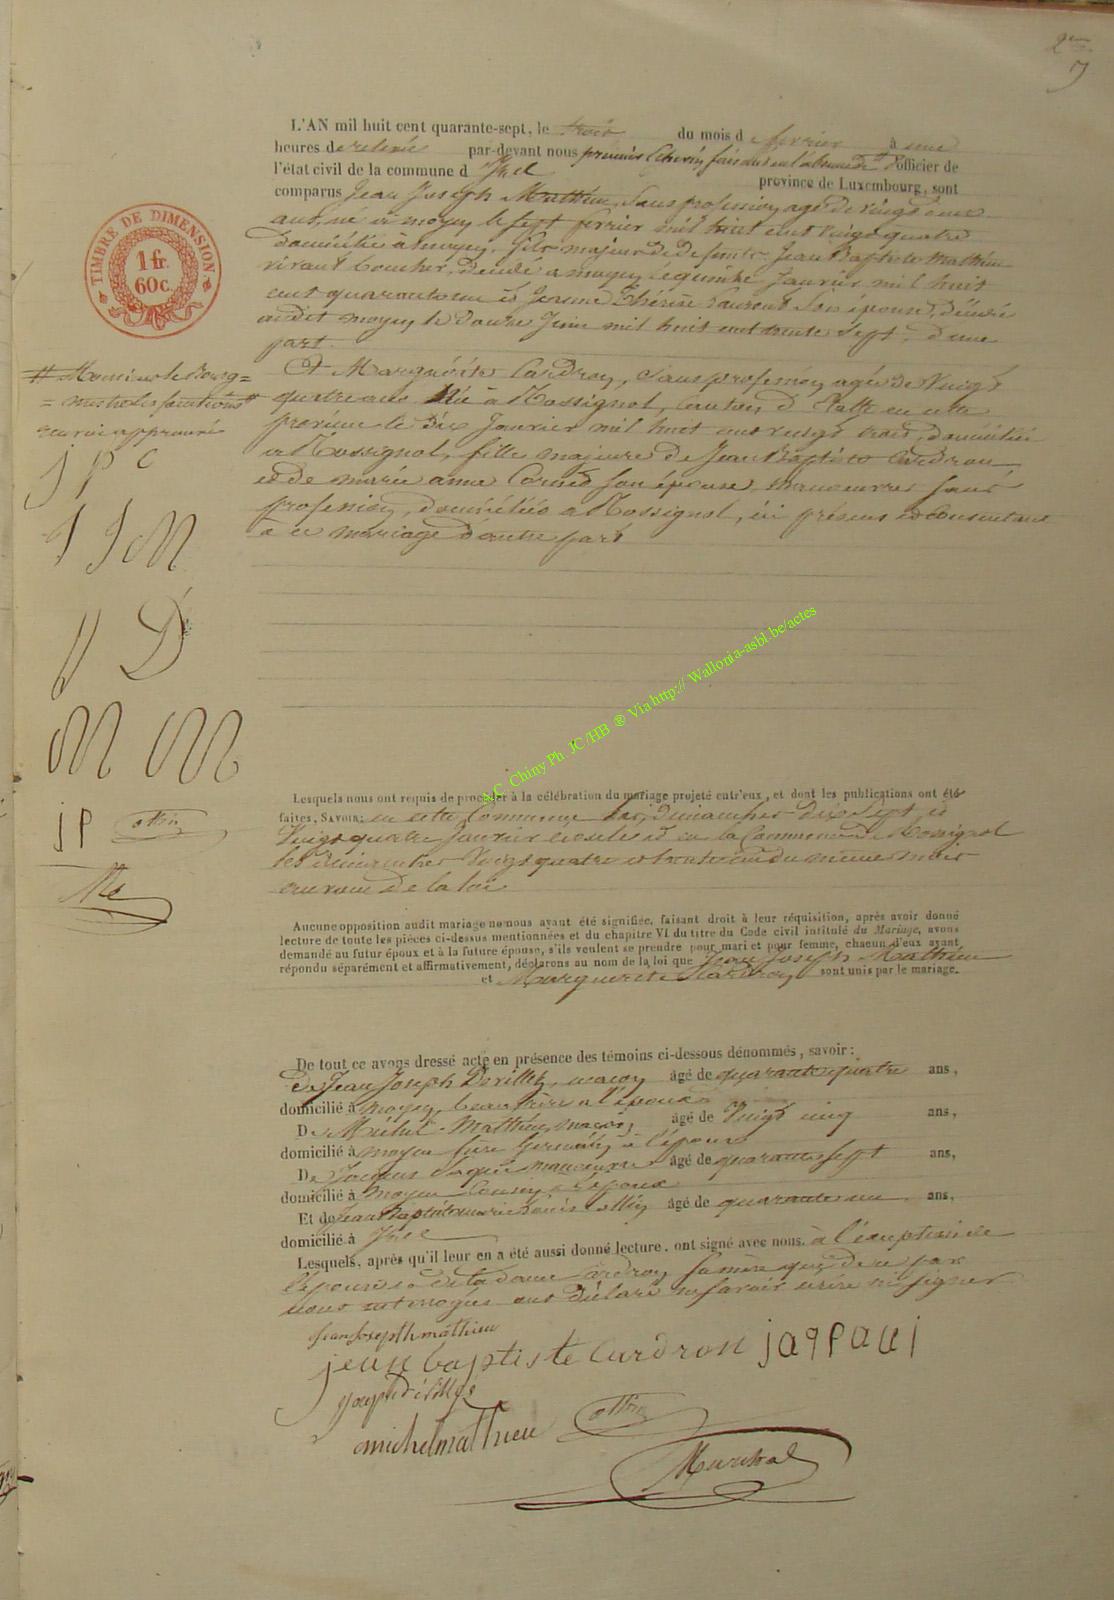 2me
7
L'AN mil huit cent quarante-sept, le trois du mois d février à une
heures de relevée par-devant nous premier Echevin faisant en l'absence d' d'officier de
l'état civil de la commune d Izel province de Luxembourg, sont
comparus Jean Joseph Mathieu, sans profession, agé de vingt deux
ans, né à moyen le sept février mil huit cent vingt quatre
domicilié à moyen, fils majeur de defunts Jean Baptiste Mathieu
vivant boucher, décédé a moyen le quinze Janvier mil huit
cent quarante un et Jeanne Thérèse Laurent son épouse, décédée
audit moyen le douze Juin mil huit cent trente sept, d'une
part.
Et Marguerite Cardron, Sans profession, agée de Vingt
quatre ans Née à Rossignol, canton d' Etalle en cette
province le dix Janvier mil huit cent vingt trois, domiciliée
à Rossignol, fille majeure de Jean Baptiste Cardron
et de marie anne Cornet son épouse, manoeuvres sans
profession, domiciliés à Rossignol, ici présens et Consentans
à ce mariage d'autre part
TIMBRE DE DIMENSION
1 fr.
60 c.
renvoi approuvé
J P C
J J M
J D
M M
J P ottin
Ma
A.C Chiny Ph. JC /HB ® Via http:// Wallonia-asbl.be/actes
Lesquels nous ont requis de procéder à la célébration du mariage projeté entr'eux, et dont les publications ont été
faites, SAVOIR: en cette Commune les dimanches dix Sept et
Vingt quatre Janvier écoulé et en la Commune de Rossignol
les dimanches Vingt quatre et trente un du même mois
au vœu de la loi
Aucune opposition audit mariage ne nous ayant été signifiée, faisant droit à leur réquisition, après avoir donné
lecture de toute les pièces ci-dessus mentionnées et du chapitre VI du titre du Code civil intitulé du Mariage, avons
demandé au futur époux et à la future épouse, s'ils veulent se prendre pour mari et pour femme, chacun d'eux ayant
répondu séparément et affirmativement, déclarons au nom de la loi que Jean Joseph Mathieu
et Marguerite Cardron sont unis par le mariage.
De tout ce avons dressé acte en présence des témoins ci-dessous dénommés, savoir:
De Jean Joseph Devillez, maçon âgé de quarante quatre ans,
domicilié à moyen, beau frère à l'époux
De Michel Mathieu, maçon âgé de Vingt cinq ans,
domicilié à moyen frère Germain à l'époux
De Jacques Paquis manoeuvre âgé de quarante sept ans,
domicilié à moyen Cousin à l'époux
Et de Jean Baptiste marie Louis ottin âgé de quarante un ans,
domicilié à Izel
Lesquels, après qu'il leur en a été aussi donné lecture, ont signé avec nous, à l'exception de
l'épouse et de la dame Cardron sa mère qui de ce par
nous interrogées ont déclaré ne savoir écrire ni signer
Jean Joseph mathieu
jean baptiste Cardron jaqpaqi
Joseph devillez
michel mathieu ottin
Marechal